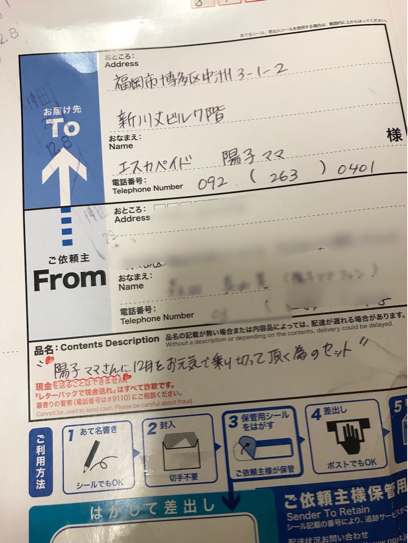 おところ:
Address
福岡市博多区中洲3-1-2
新川丈ビル7階
お届け先
To
おなまえ:
Name
エスカペイド 陽子ママ
様
電話番号:
Telephone Number
092 ( 263 ) 0401
おところ:
Address
ご依頼主
From
おなまえ:
Name
電話番号:
Telephone Number
品名: Contents Description
品名の記載が無い場合または内容品によっては、配達が遅れる場合があります。
Without a description or depending on the contents, delivery could be delayed.
"陽子ママさんに12月をお元気で乗り切って頂く為のセット"
現金を送ることはできません
「レターパックで現金送れ」はすべて詐欺です。
最寄りの警察(電話番号は#9110)にご相談ください。
Cannot be used to send cash. Please be careful about fraud.
ご利用方法
1 あて名書き
シールでもOK
2 封入
切手不要
3 保管用シールをはがす
ご依頼主が保管
4 差出し
ポストでもOK
はがして差出し
ご依頼主様保管用
Sender To Retain
シール記載の番号により、追跡サービスが
配達状況お問い合わせ